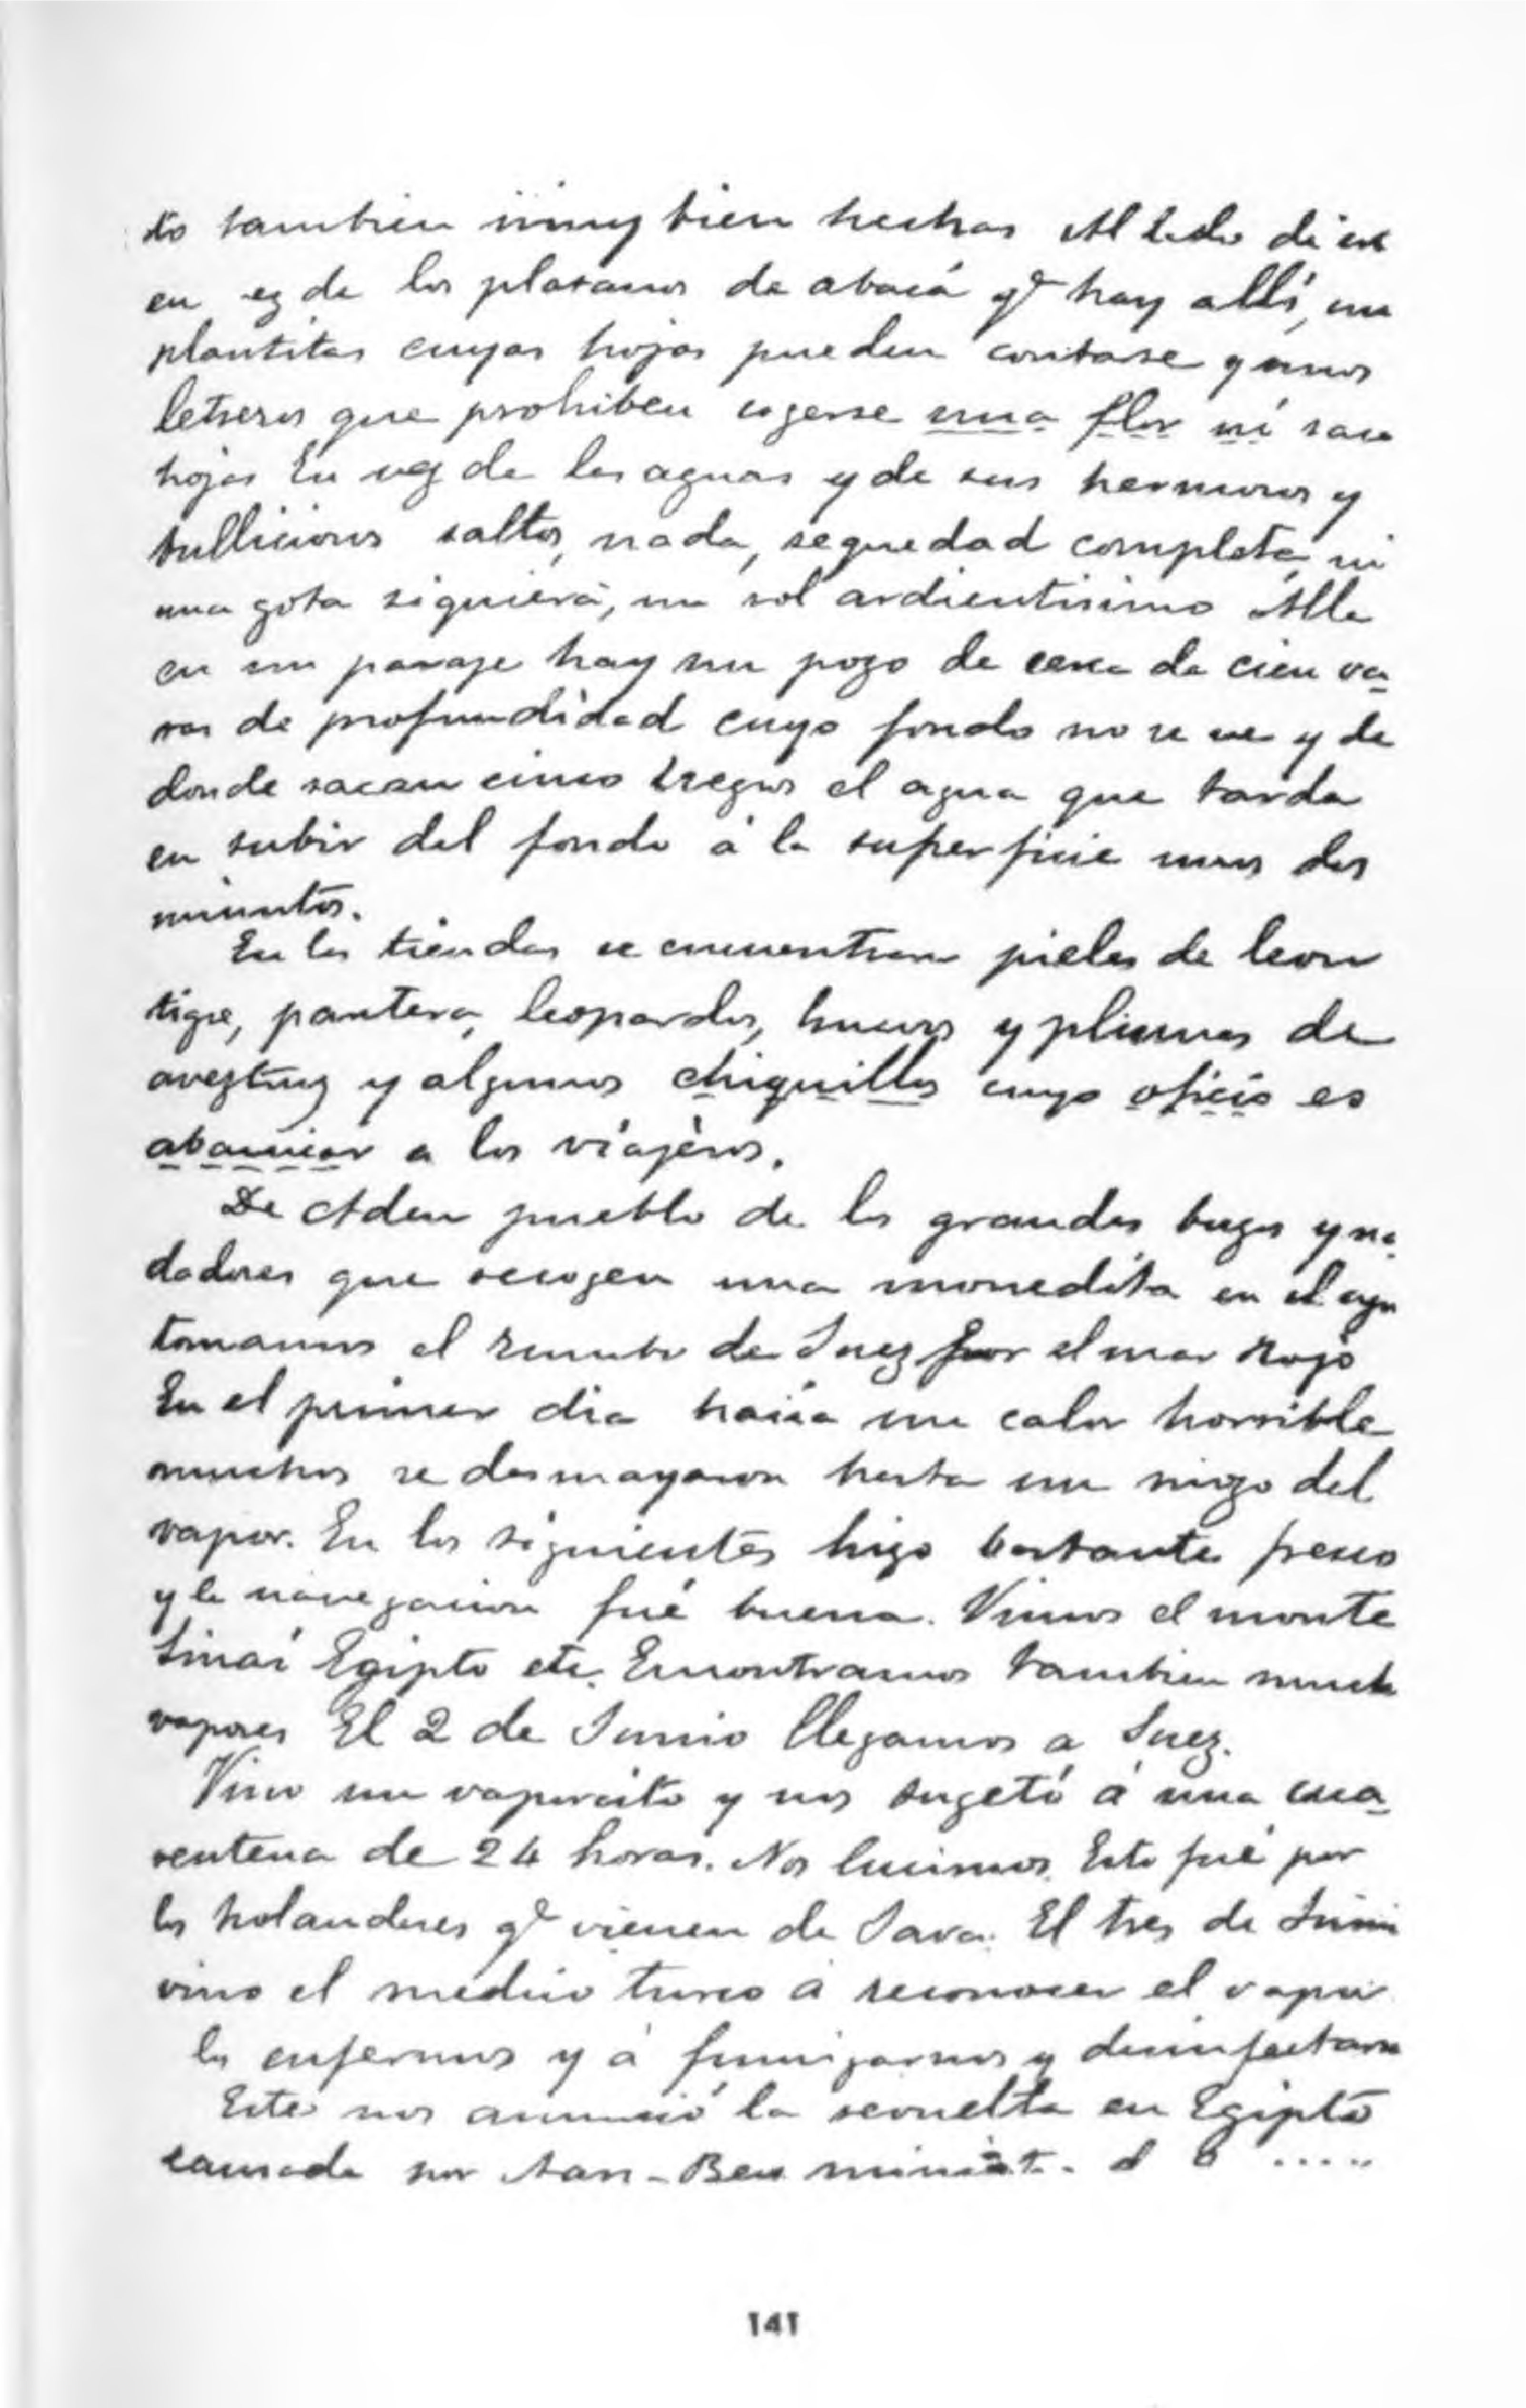 do tambien muy bien hechas Al lado de es
en vez de los platanos de abacá q.e hay allí, una
plantitas cuyas hojas pueden contarse y unos
letreros que prohiben cogerse una flor ni saca
hojas En vez de las aguas y de sus hermosos y
bulliciosos saltos, nada, sequedad completa, ni
una gota siquiera, un sol ardientisimo Alla
en un paraje hay un pozo de cerca de cien va-
ras de profundidad cuyo fondo no se ve y de
donde sacan cinco negros el agua que tarda
en subir del fondo á la superficie unos dos
minutos.
En las tiendas se encuentran pieles de leon
tigre, pantera, leopardos, huevos y plumas de
avestruz y algunos chiquillos cuyo oficio es
abanicar a los viajeros.
De Aden pueblo de los grandes buzos y na-
dadores que recogen una monedita en el agu
tomamos el rumbo de Suez por el mar Rojo
En el primer dia hacia un calor horrible
muchos se desmayaron hasta un mozo del
vapor. En los siguientes hizo bastante fresco
y la navegacion fué buena. Vimos el monte
Sinaí Egipto etc. Encontramos tambien mucho
vapores El 2 de Junio llegamos a Suez.
Vino un vaporcito y nos sugetó á una cua-
rentena de 24 horas. Nos lucimos. Esto fué por
los holandeses q.e vienen de Java. El tres de Juni
vino el medico turco á reconocer el vapor
los enfermos y á fumigarnos y desinfectarn
Este nos anunció la revuelta en Egipto
causada por
141